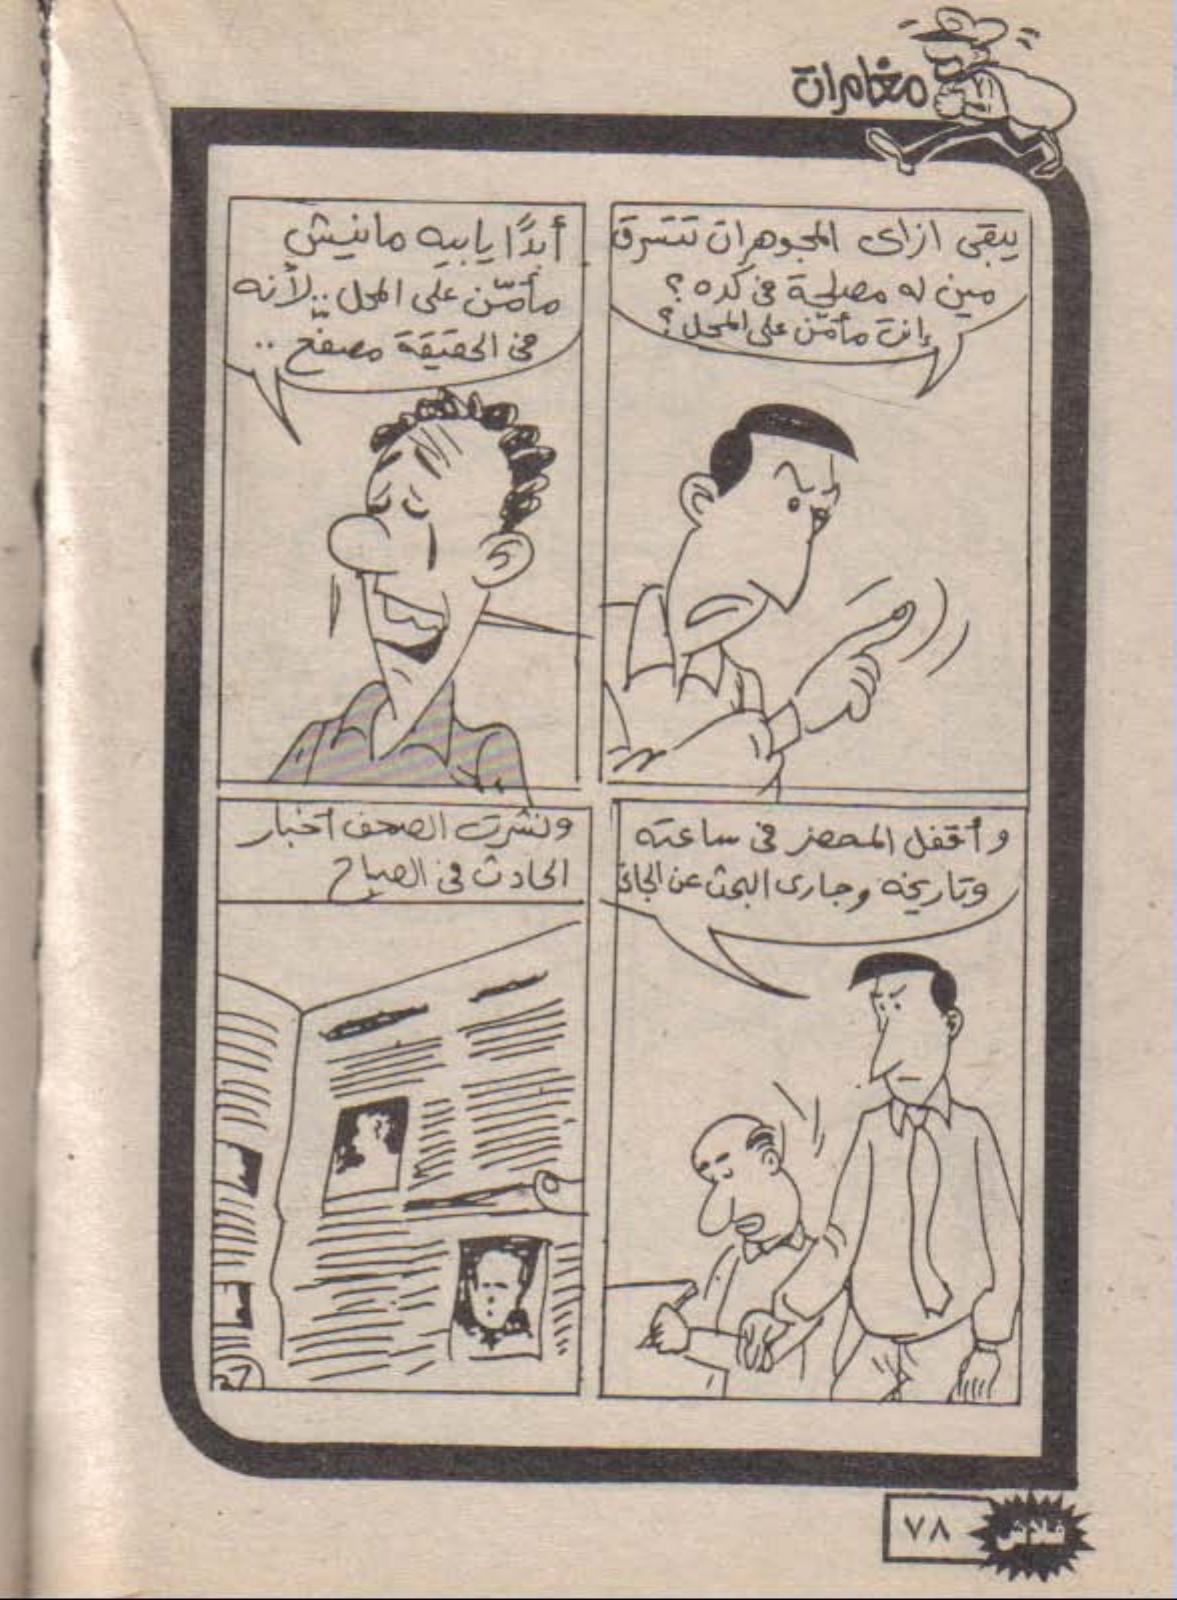 مغامرات
يبقى ازاى المجوهرات تتسرق
مين له مصلحة فى كده ؟
إنت مأمّن على المحل ؟
أبدًا يا بيه مانيش
مأمّن على المحل .. لأنه
فى الحقيقة مصفّح ..
وأقفل المحضر فى ساعته
وتاريخه وجارى البحث عن الجانى
ونشرت الصحف أخبار
الحادث فى الصباح
٢٧
٧٨
فلاش